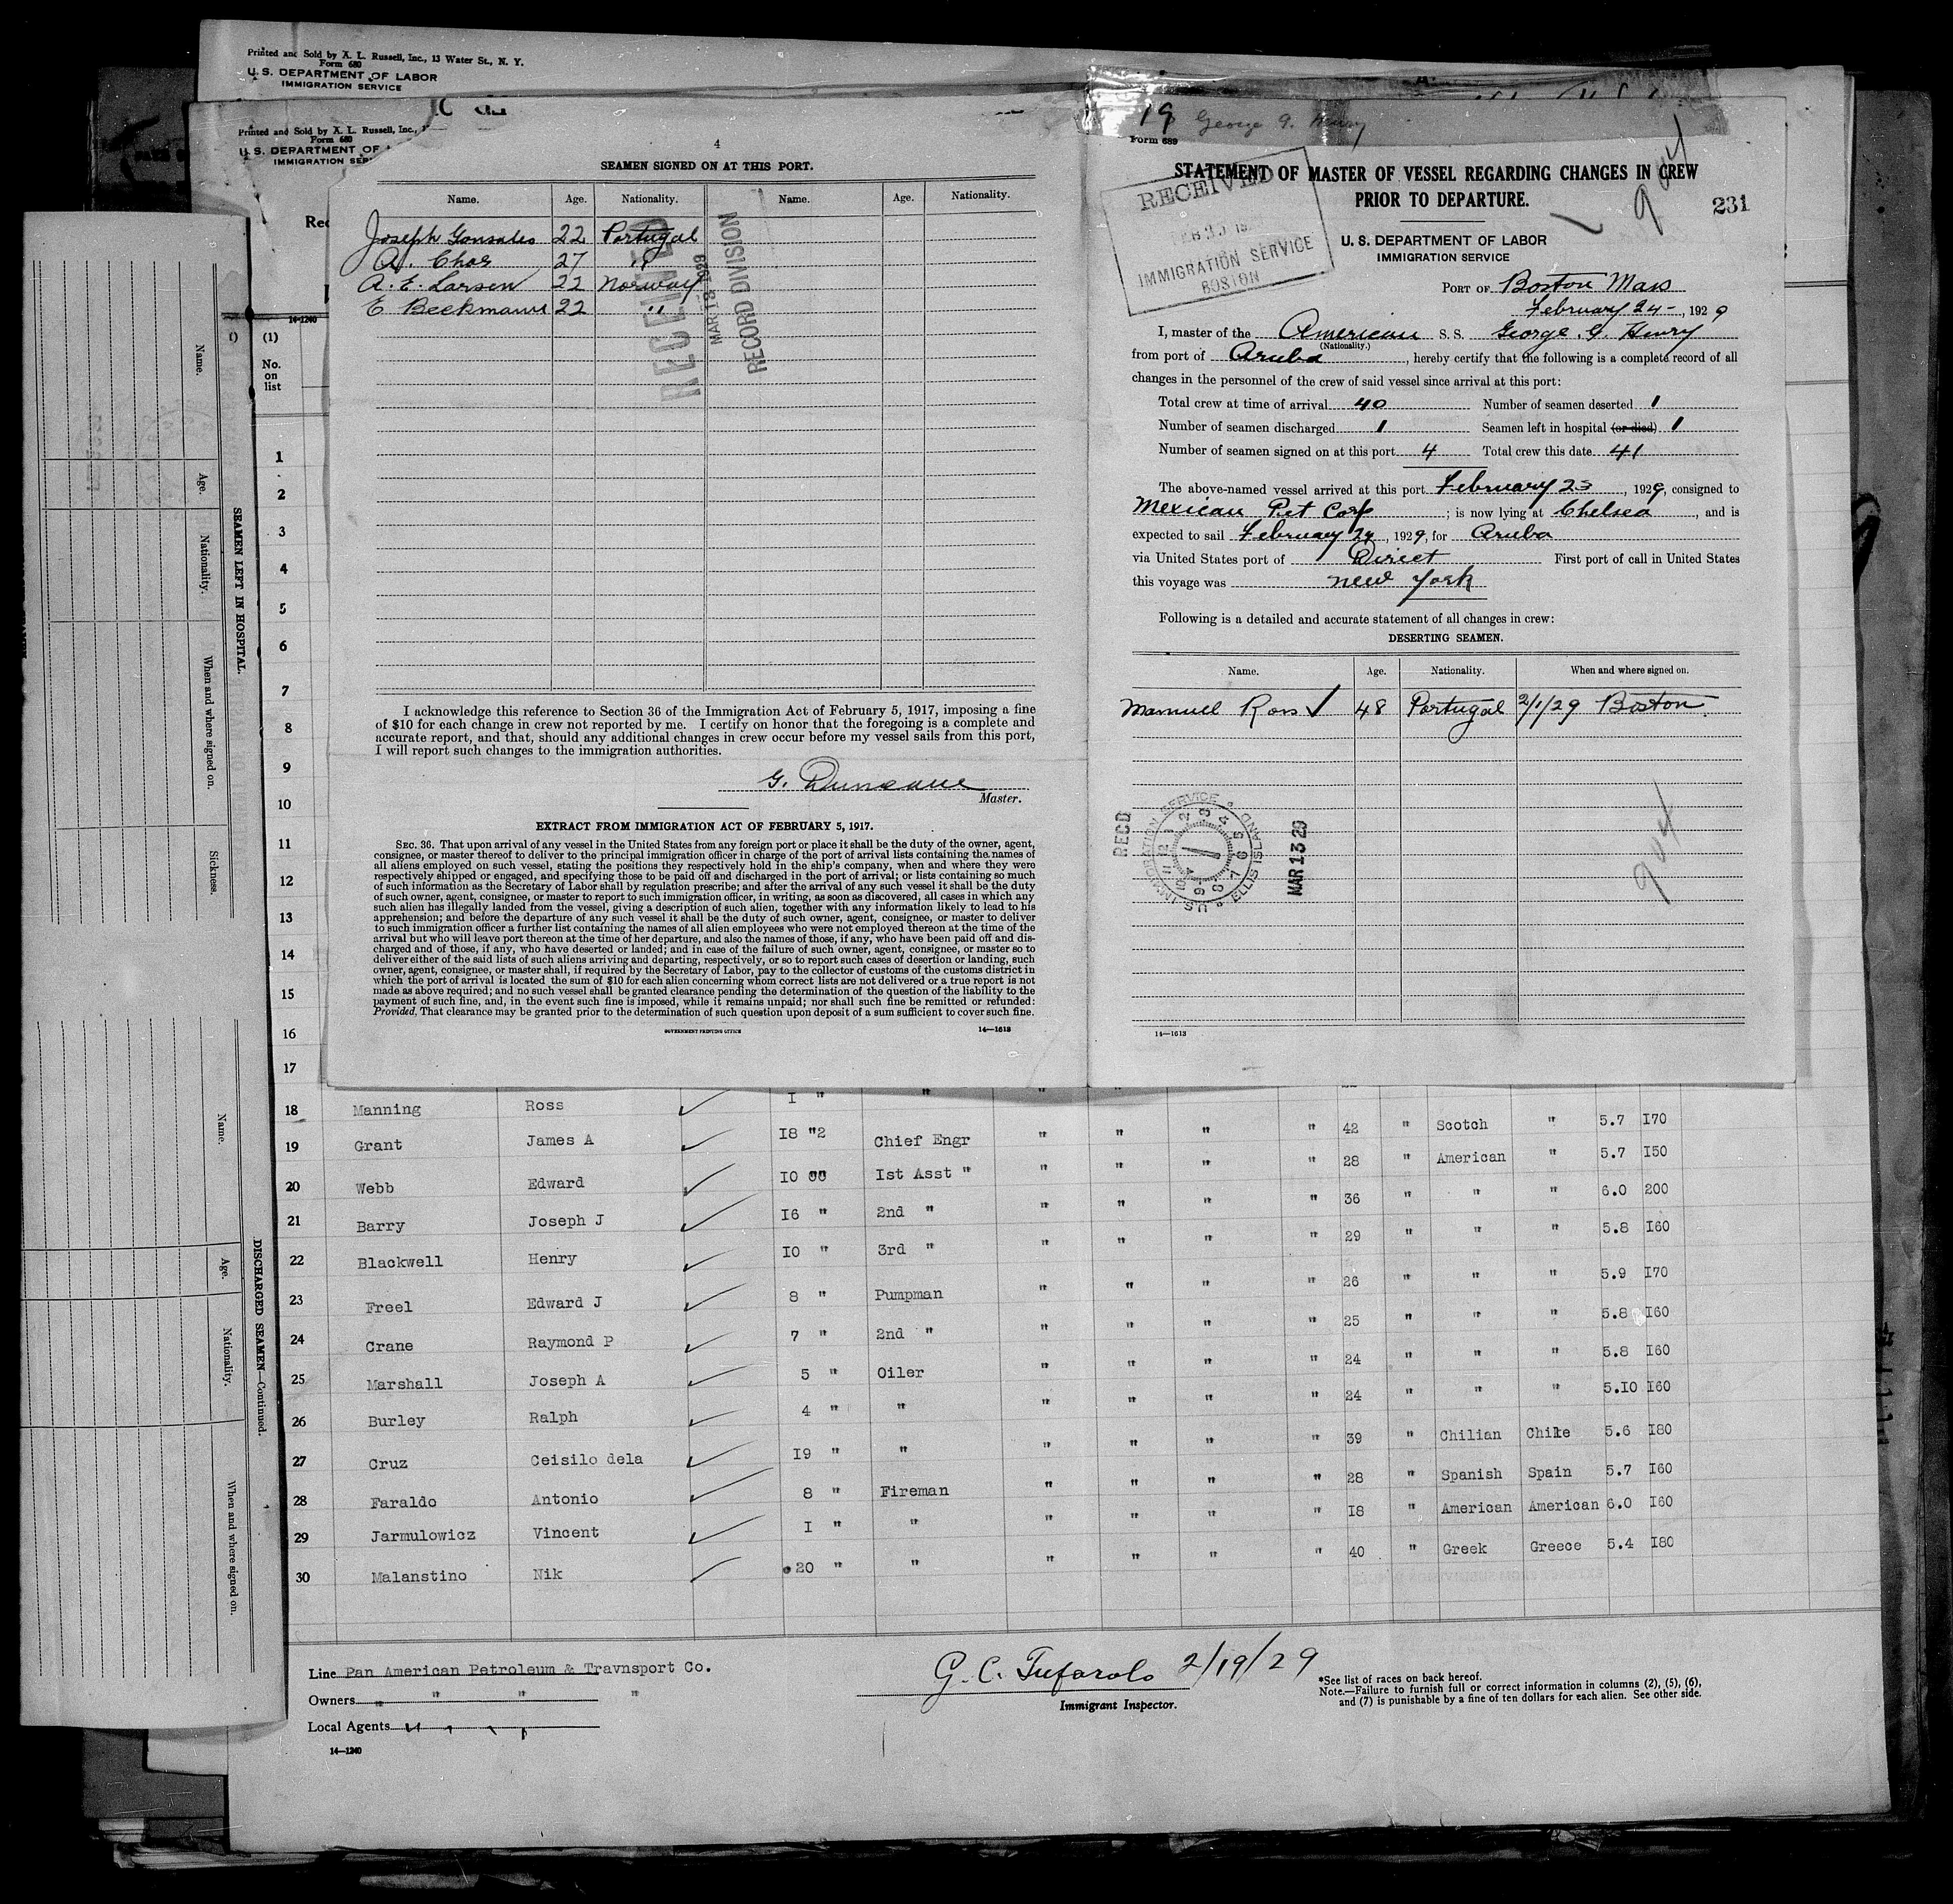 Printed and Sold by A. L. Russell, Inc., 13 Water St., N. Y.
Form 680
U. S. DEPARTMENT OF LABOR
IMMIGRATION SERVICE
Printed and Sold by A. L. Russell, Inc.,
Form 680
U. S. DEPARTMENT OF
IMMIGRATION SER
14-1240
(1)
No.
on
list
4
SEAMEN SIGNED ON AT THIS PORT.
Name. Age. Nationality. Name. Age. Nationality.
Joseph Gonsales 22 Portugal
A. Chos 27 "
A. E. Larsen 22 Norway
E Beekmann 22 "
RECEIVED
MAR 18 1929
RECORD DIVISION
I acknowledge this reference to Section 36 of the Immigration Act of February 5, 1917, imposing a fine
of $10 for each change in crew not reported by me. I certify on honor that the foregoing is a complete and
accurate report, and that, should any additional changes in crew occur before my vessel sails from this port,
I will report such changes to the immigration authorities.
G. Duncan
Master.
EXTRACT FROM IMMIGRATION ACT OF FEBRUARY 5, 1917.
SEC. 36. That upon arrival of any vessel in the United States from any foreign port or place it shall be the duty of the owner, agent,
consignee, or master thereof to deliver to the principal immigration officer in charge of the port of arrival lists containing the names of
all aliens employed on such vessel, stating the positions they respectively hold in the ship's company, when and where they were
respectively shipped or engaged, and specifying those to be paid off and discharged in the port of arrival; or lists containing so much
of such information as the Secretary of Labor shall by regulation prescribe; and after the arrival of any such vessel it shall be the duty
of such owner, agent, consignee, or master to report to such immigration officer, in writing, as soon as discovered, all cases in which any
such alien has illegally landed from the vessel, giving a description of such alien, together with any information likely to lead to his
apprehension; and before the departure of any such vessel it shall be the duty of such owner, agent, consignee, or master to deliver
to such immigration officer a further list containing the names of all alien employees who were not employed thereon at the time of the
arrival but who will leave port thereon at the time of her departure, and also the names of those, if any, who have been paid off and dis-
charged and of those, if any, who have deserted or landed; and in case of the failure of such owner, agent, consignee, or master so to
deliver either of the said lists of such aliens arriving and departing, respectively, or so to report such cases of desertion or landing, such
owner, agent, consignee, or master shall, if required by the Secretary of Labor, pay to the collector of customs of the customs district in
which the port of arrival is located the sum of $10 for each alien concerning whom correct lists are not delivered or a true report is not
made as above required; and no such vessel shall be granted clearance pending the determination of the question of the liability to the
payment of such fine, and, in the event such fine is imposed, while it remains unpaid; nor shall such fine be remitted or refunded:
Provided, That clearance may be granted prior to the determination of such question upon deposit of a sum sufficient to cover such fine.
GOVERNMENT PRINTING OFFICE 14—1613
19 George G. Henry
Form 689
STATEMENT OF MASTER OF VESSEL REGARDING CHANGES IN CREW
PRIOR TO DEPARTURE.
231
RECEIVED
IMMIGRATION SERVICE
BOSTON
U. S. DEPARTMENT OF LABOR
IMMIGRATION SERVICE
PORT OF Boston Mass
February 24-, 1929
I, master of the American S. S. George G. Henry
(Nationality.)
from port of Aruba, hereby certify that the following is a complete record of all
changes in the personnel of the crew of said vessel since arrival at this port:
Total crew at time of arrival 40 Number of seamen deserted 1
Number of seamen discharged 1 Seamen left in hospital (or died) 1
Number of seamen signed on at this port 4 Total crew this date 41
The above-named vessel arrived at this port February 23, 1929, consigned to
Mexican Pet Corp; is now lying at Chelsea, and is
expected to sail February 24, 1929, for Aruba
via United States port of Direct First port of call in United States
this voyage was New York
Following is a detailed and accurate statement of all changes in crew:
DESERTING SEAMEN.
Name. Age. Nationality. When and where signed on.
Manuel Ross ✓ 48 Portugal 2/1/29 Boston
RECD
U.S. IMMIGRATION SERVICE ELLIS ISLAND
MAR 13 29
14—1613
SEAMEN LEFT IN HOSPITAL.
Name. Age. Nationality. When and where signed on. Sickness.
DISCHARGED SEAMEN—Continued.
Name. Age. Nationality. When and where signed on.
1
2
3
4
5
6
7
8
9
10
11
12
13
14
15
16
17
18 Manning Ross ✓ I " "
19 Grant James A ✓ I8 "2 Chief Engr " " " " 42 " Scotch " 5.7 I70
20 Webb Edward ✓ I0 "" Ist Asst " " " " " 28 " American " 5.7 I50
21 Barry Joseph J ✓ I6 " 2nd " " " " " 36 " " " 6.0 200
22 Blackwell Henry ✓ I0 " 3rd " " " " " 29 " " " 5.8 I60
23 Freel Edward J ✓ 8 " Pumpman " " " " 26 " " " 5.9 I70
24 Crane Raymond P ✓ 7 " 2nd " " " " " 25 " " " 5.8 I60
25 Marshall Joseph A ✓ 5 " Oiler " " " " 24 " " " 5.8 I60
26 Burley Ralph ✓ 4 " " " " " " 24 " " " 5.I0 I60
27 Cruz Ceisilo dela ✓ I9 " " " " " " 39 " Chilian Chile 5.6 I80
28 Faraldo Antonio ✓ 8 " Fireman " " " " 28 " Spanish Spain 5.7 I60
29 Jarmulowicz Vincent ✓ I " " " " " " I8 " American American 6.0 I60
30 Malanstino Nik ✓ 20 " " " " " " 40 " Greek Greece 5.4 I80
Line Pan American Petroleum & Travnsport Co.
Owners " " " "
Local Agents " " " "
14—1240
G. C. Tufarolo 2/19/29
Immigrant Inspector.
*See list of races on back hereof.
Note.—Failure to furnish full or correct information in columns (2), (5), (6),
and (7) is punishable by a fine of ten dollars for each alien. See other side.